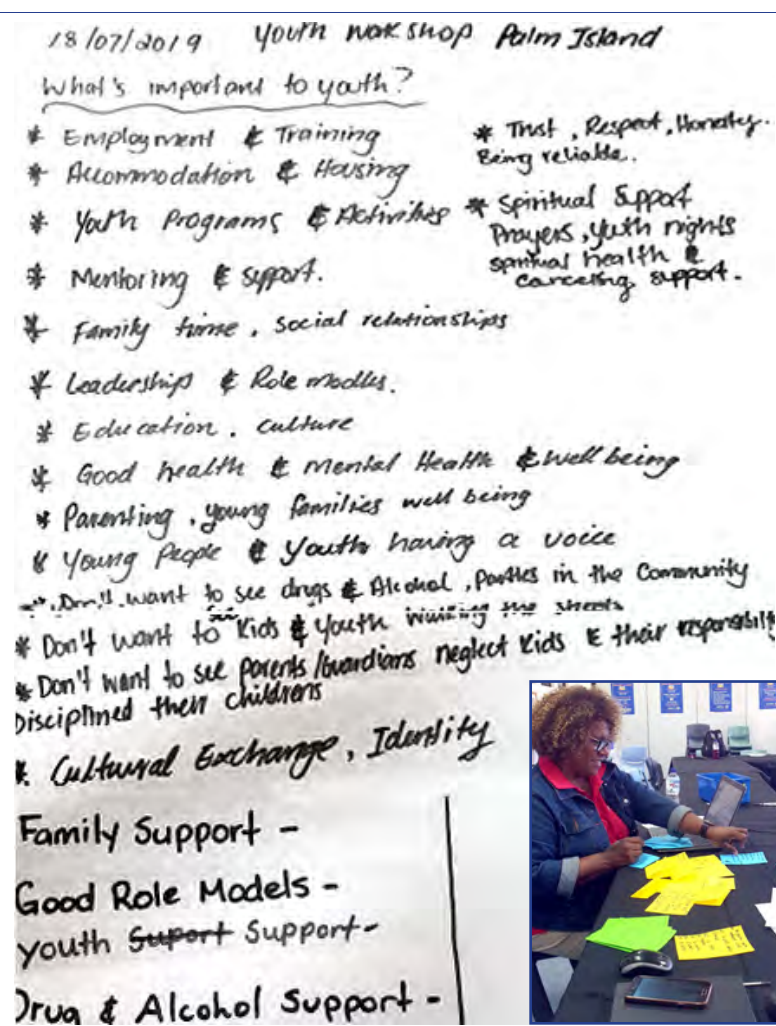 18/07/2019 youth workshop Palm Island
What's important to youth?
* Employment & Training
* Accommodation & Housing
* Youth Programs & Activities
* Mentoring & support.
* Family time, social relationships
* Leadership & Role modles.
* Education, culture
* Good health & mental Health & well being
* Parenting, young families well being
* Young People & Youth having a voice
Don't want to see drugs & Alcohol, parties in the Community
* Don't want to see Kids & youth walking the streets
* Don't want to see parents/guardians neglect kids & their responsibility
Disciplined their childrens
* Cultural Exchange, Identity
* Trust, Respect, Honesty.
Being reliable.
* Spiritual Support
Prayers, youth rights
spiritual health &
support.
Family Support -
Good Role Models -
youth Suport Support -
Drug & Alcohol Support -